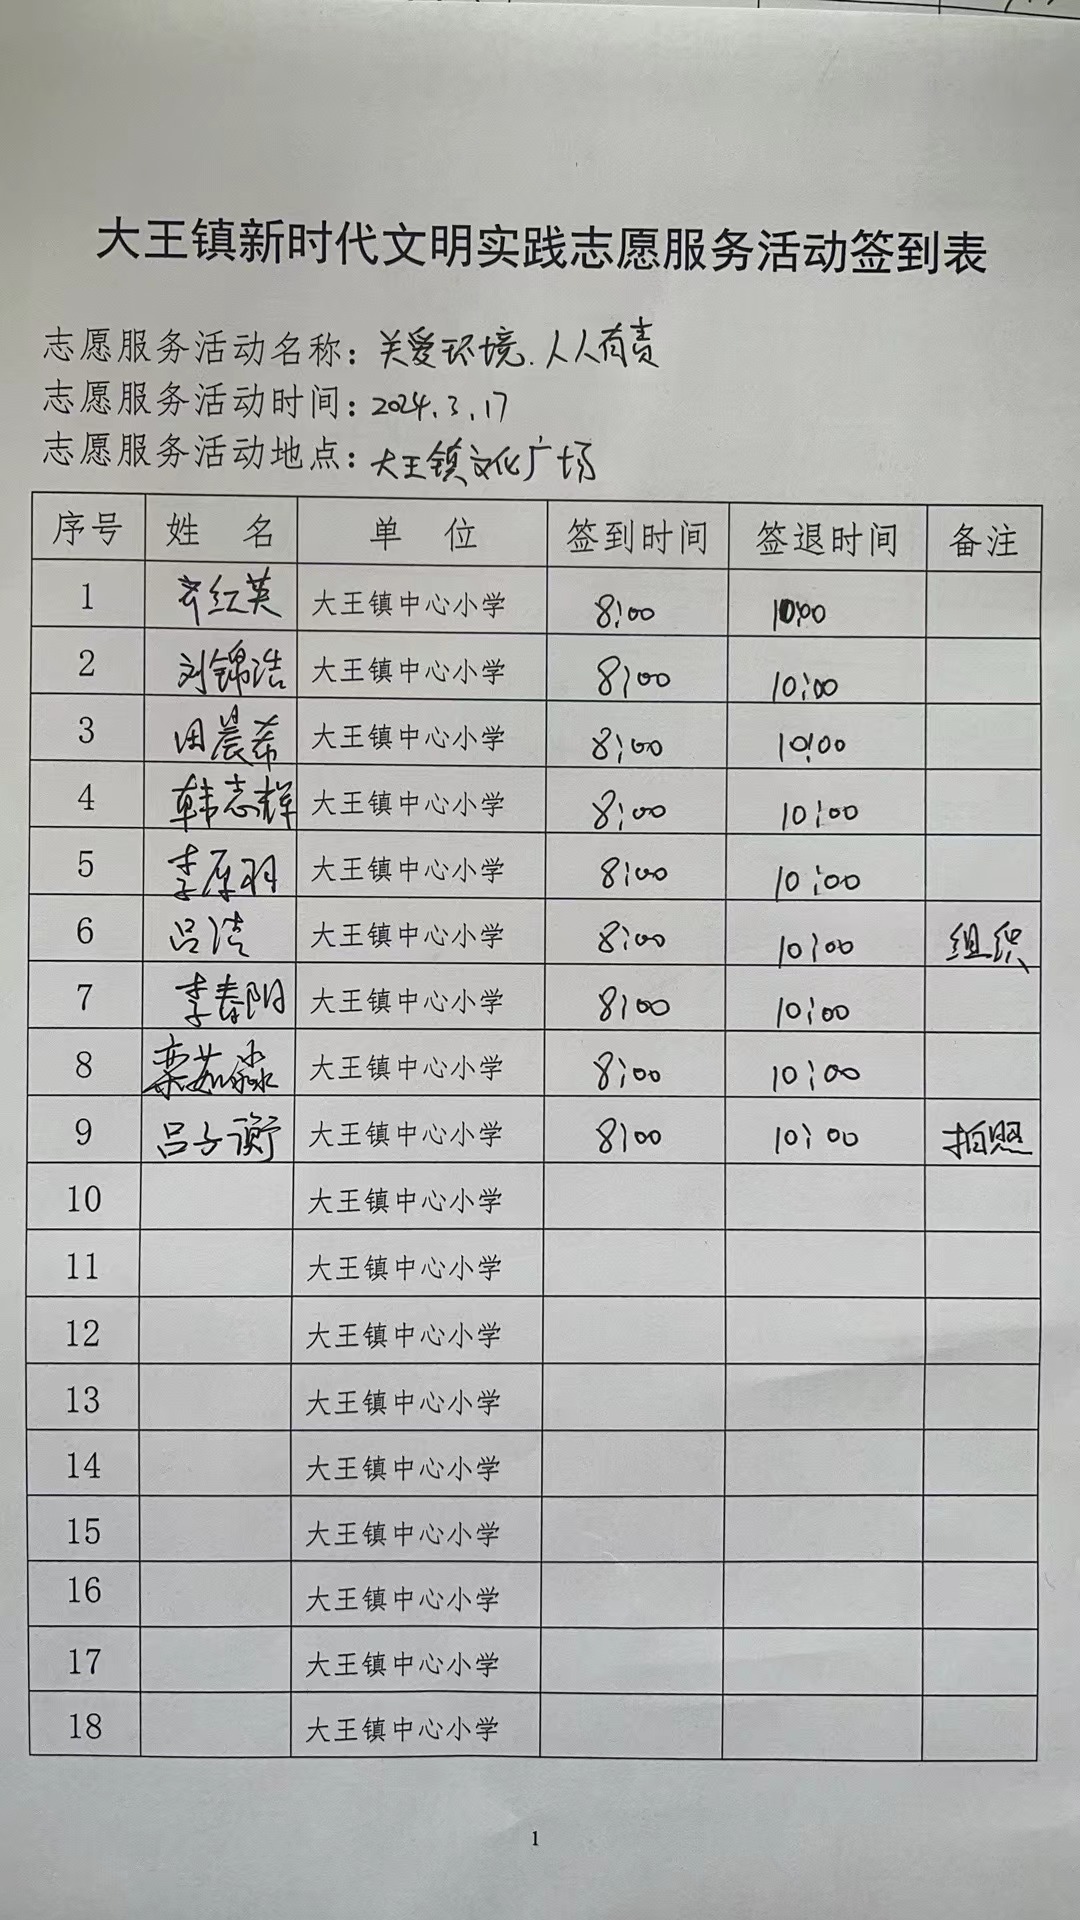 大王镇新时代文明实践志愿服务活动签到表
志愿服务活动名称：关爱环境.人人有责
志愿服务活动时间：2024.3.17
志愿服务活动地点：大王镇文化广场
序号 姓名 单位 签到时间 签退时间 备注
1 齐红英 大王镇中心小学 8:00 10:00
2 刘锦浩 大王镇中心小学 8:00 10:00
3 田晨希 大王镇中心小学 8:00 10:00
4 韩志辉 大王镇中心小学 8:00 10:00
5 李原羽 大王镇中心小学 8:00 10:00
6 吕洁 大王镇中心小学 8:00 10:00 组织
7 李春阳 大王镇中心小学 8:00 10:00
8 栾茹淼 大王镇中心小学 8:00 10:00
9 吕子衡 大王镇中心小学 8:00 10:00 拍照
10 大王镇中心小学
11 大王镇中心小学
12 大王镇中心小学
13 大王镇中心小学
14 大王镇中心小学
15 大王镇中心小学
16 大王镇中心小学
17 大王镇中心小学
18 大王镇中心小学
1